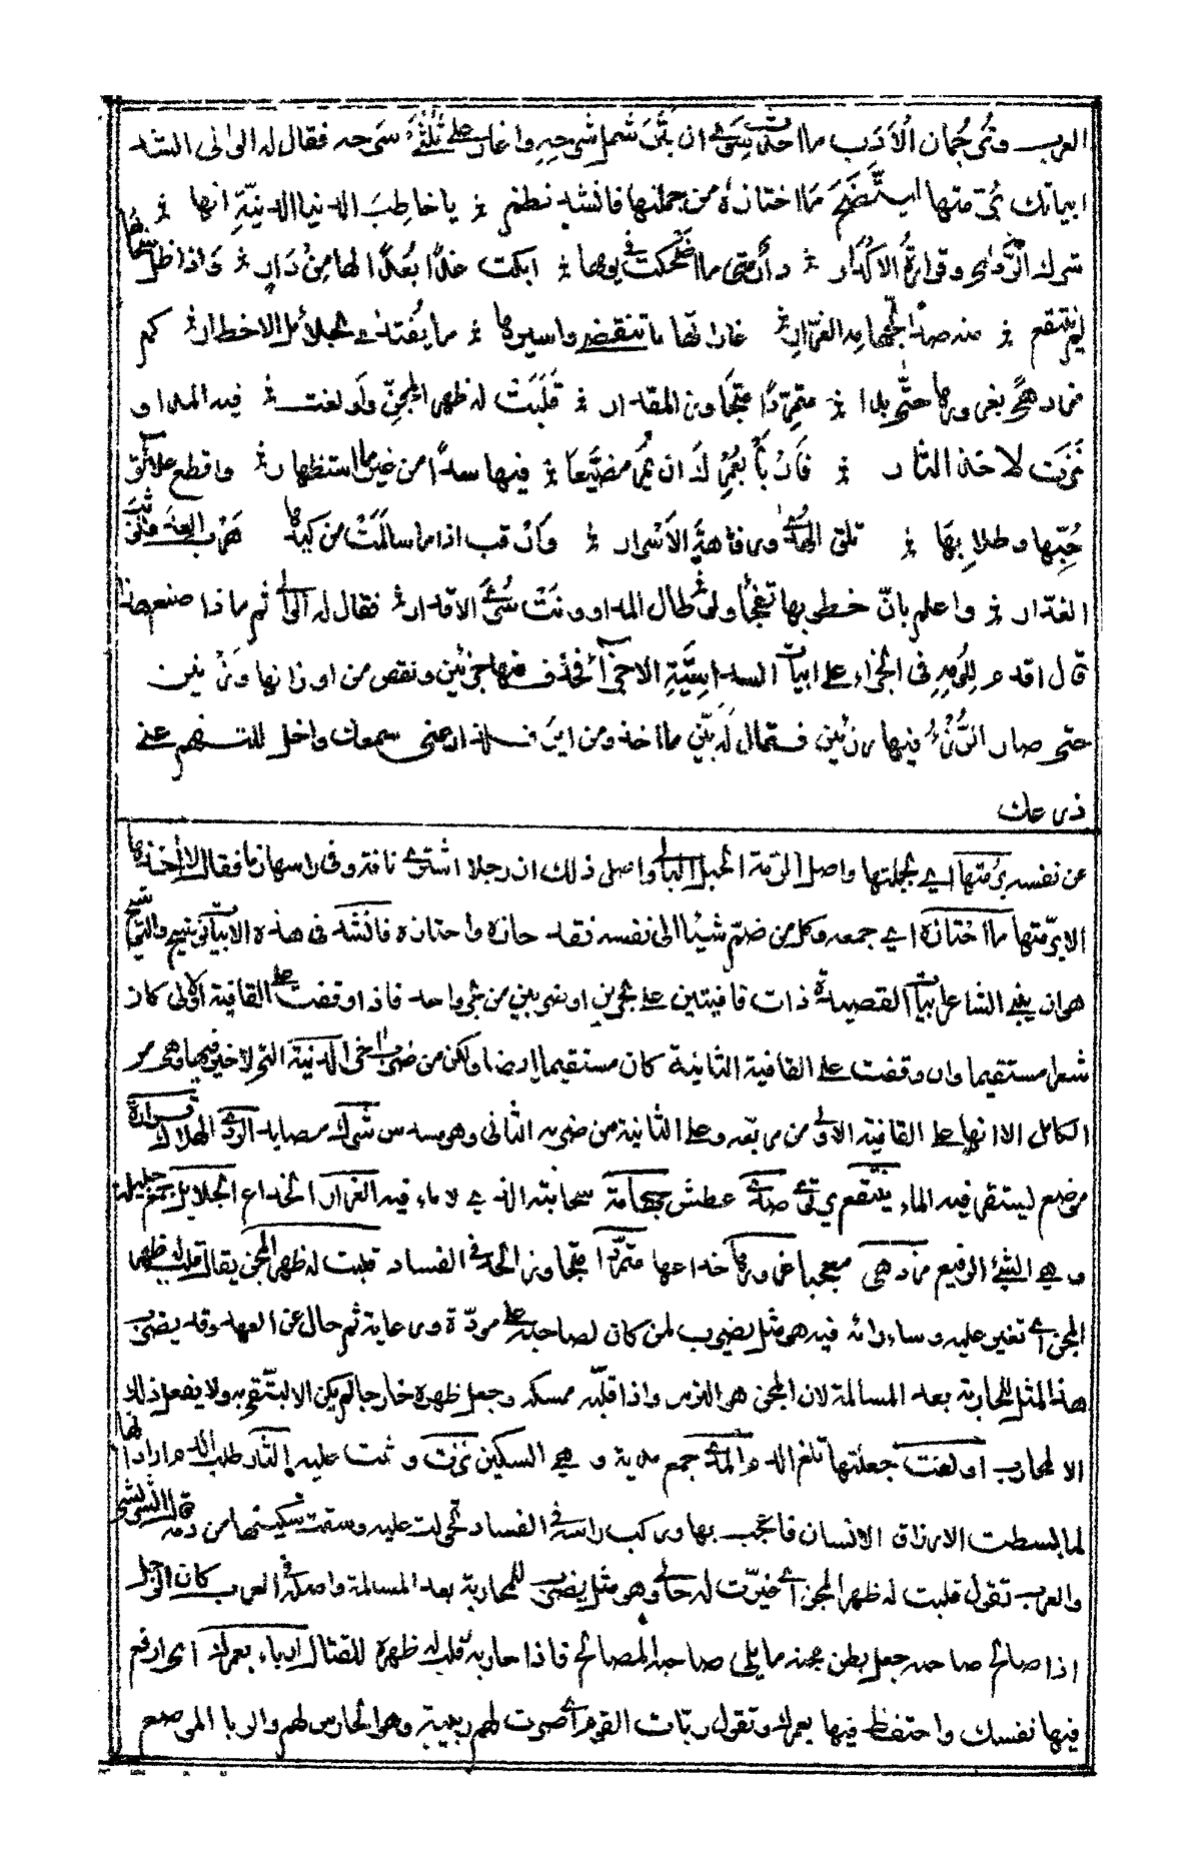 العرب وتُرجُمان الأَدَب ما احدَثَ سِوَى ان بَتَرَ شَمل شَرحِهِ واغار على ثُلُثَيْ سَرحه فقال له الوالى انشد
ابياتك برُمّتها ليَتَّضِحَ مَا احتازهُ من جملتها فانشد نظم ؞ يا خاطِبَ الدنيا الدنيّةِ انها ؞
شرك الرَّدٰى وقرارةُ الاكدار ؞ دارٌ متى ما اضحكت فى يومها ؞ ابكت غدًا بُعدًا لها مِنْ دَارِ ؞ وَاذا اظل سحابُها
لم ينتقع ؞ منه صدًا لجَهامِه الغرّارِ ؞ غاراتها ما تنقضى واسيرها ؞ ما يُفتدٰى بجلائل الاخطار ؞ كم
مزدهىً بغرورها حتّى بدا ؞ متمرّدًا متجاوز المقدار ؞ قَلَبَتْ له ظهر المِجنّ واَولغت ؞ فيه المدا و
نَزَت لاخذ الثار ؞ فَارْبَأْ بعُمرِكَ ان يَمُرّ مضيَّعا ؞ فيها سدًا من غير ما استظهار ؞ واقطع علائق
حُبِّها وطلابِهَا ؞ تلقَ الهُدٰى ورفاهةَ الاَسْرار ؞ وَارْقب اذا ما سالمَتْ من كيدها حَرْب العِدَى وتوثُّبَ
الغدّار ؞ واعلم بانّ خطوبها تفجأ ولو طال المدا وونَتْ سُرَى الاقدار ؞ فقال له الوالى ثم ماذا صنع هذا
قال اقدم لِلُؤمِهِ فى الجزاء على ابياتى السداسِيَّةِ الاجزآء فحذف منها جزئين ونقص من اوزانها وَزْنين
حتى صار الرُّزْءُ فيها رزئين فقال له بَيِّن ما اخذ ومن اينَ فلذ ارعنى سمعك واخل للتفهم عنى
ذرعك
عن نفسه برُمتها اى بجملتها واصل الرمة الحبل البالى واصل ذلك ان رجلا اشترى ناقة وفى راسها زما فقال لا آخذها
الا برمّتها ما احتازه اى جمعه وكل من ضمّ شيئا الى نفسه فقد حازه واحتازه فانشد فى هذه الابيات توشيح والتوشيح
هو ان يبنى الشاعر ابيات القصيدة ذات قافيتين على بحرين او ضربين من بحر واحد فاذا وقفت على القافية الاولى كان
شعرا مستقيما وان وقفت على القافية الثانية كان مستقيما ايضا ولكن من ضرب اخر الدنية التى لا خير فيها وهى من
الكامل الا انها على القافية الاولى من مربعه وعلى الثانية من ضربه الثانى وهو مسدس شرك مصايد الردى الهلاك قرارة
موضع ليستقر فيه الماء ينتقع يروى صدى عطش جهامة سحابته الذى لا ماء فيه الغرار الخداع الجلايل جمع جليلة
و هى الشئ الرفيع مزدهى معجبا غرورها خداعها متمردًا متجاوز الحد فى الفساد قلبت له ظهر المجن يقال قلب له ظهر
المجن اى تغير عليه وساء رائه فيه هو مثل يضرب لمن كان لصاحبه على مودّة ورعاية ثم حال عن العهد وقد يضرب
هذا المثل للمحاربة بعد المسالمة لان المجن هو الترس واذا قلبّه ممسكه وجعل ظهره خارجا لم يكن الا ليتّقى به ولا يفعل ذلك
الا لمحارب اولغت جعلتها تلغ الدم والمدى جمع مدية و هى السكين نزت وثبت عليه الثار طلب الدم ارادا انها
لما بسطت الارزاق الانسان فاعجب بها وركب راسه فى الفساد تحولت عليه وسقت سكينها من دمه قال الشريشى
والعرب تقول قلبت له ظهر المجن اى خيرّت له حالى وهو مثل يضرب للمحاربة بعد المسالمة واصله فى العرب كان الرجل
اذا صالح صاحبه جعل بطن مجنه مما يلى صاحبه المصالح فاذا حاربه قلب له ظهره للقتال اربأ بعمرك اى ارفع
فيها نفسك واحتفظ فيها بعمرك وتقول ربّات القوم اى صرت لهم ربيبة وهو الحارس لهم والربا الموضع